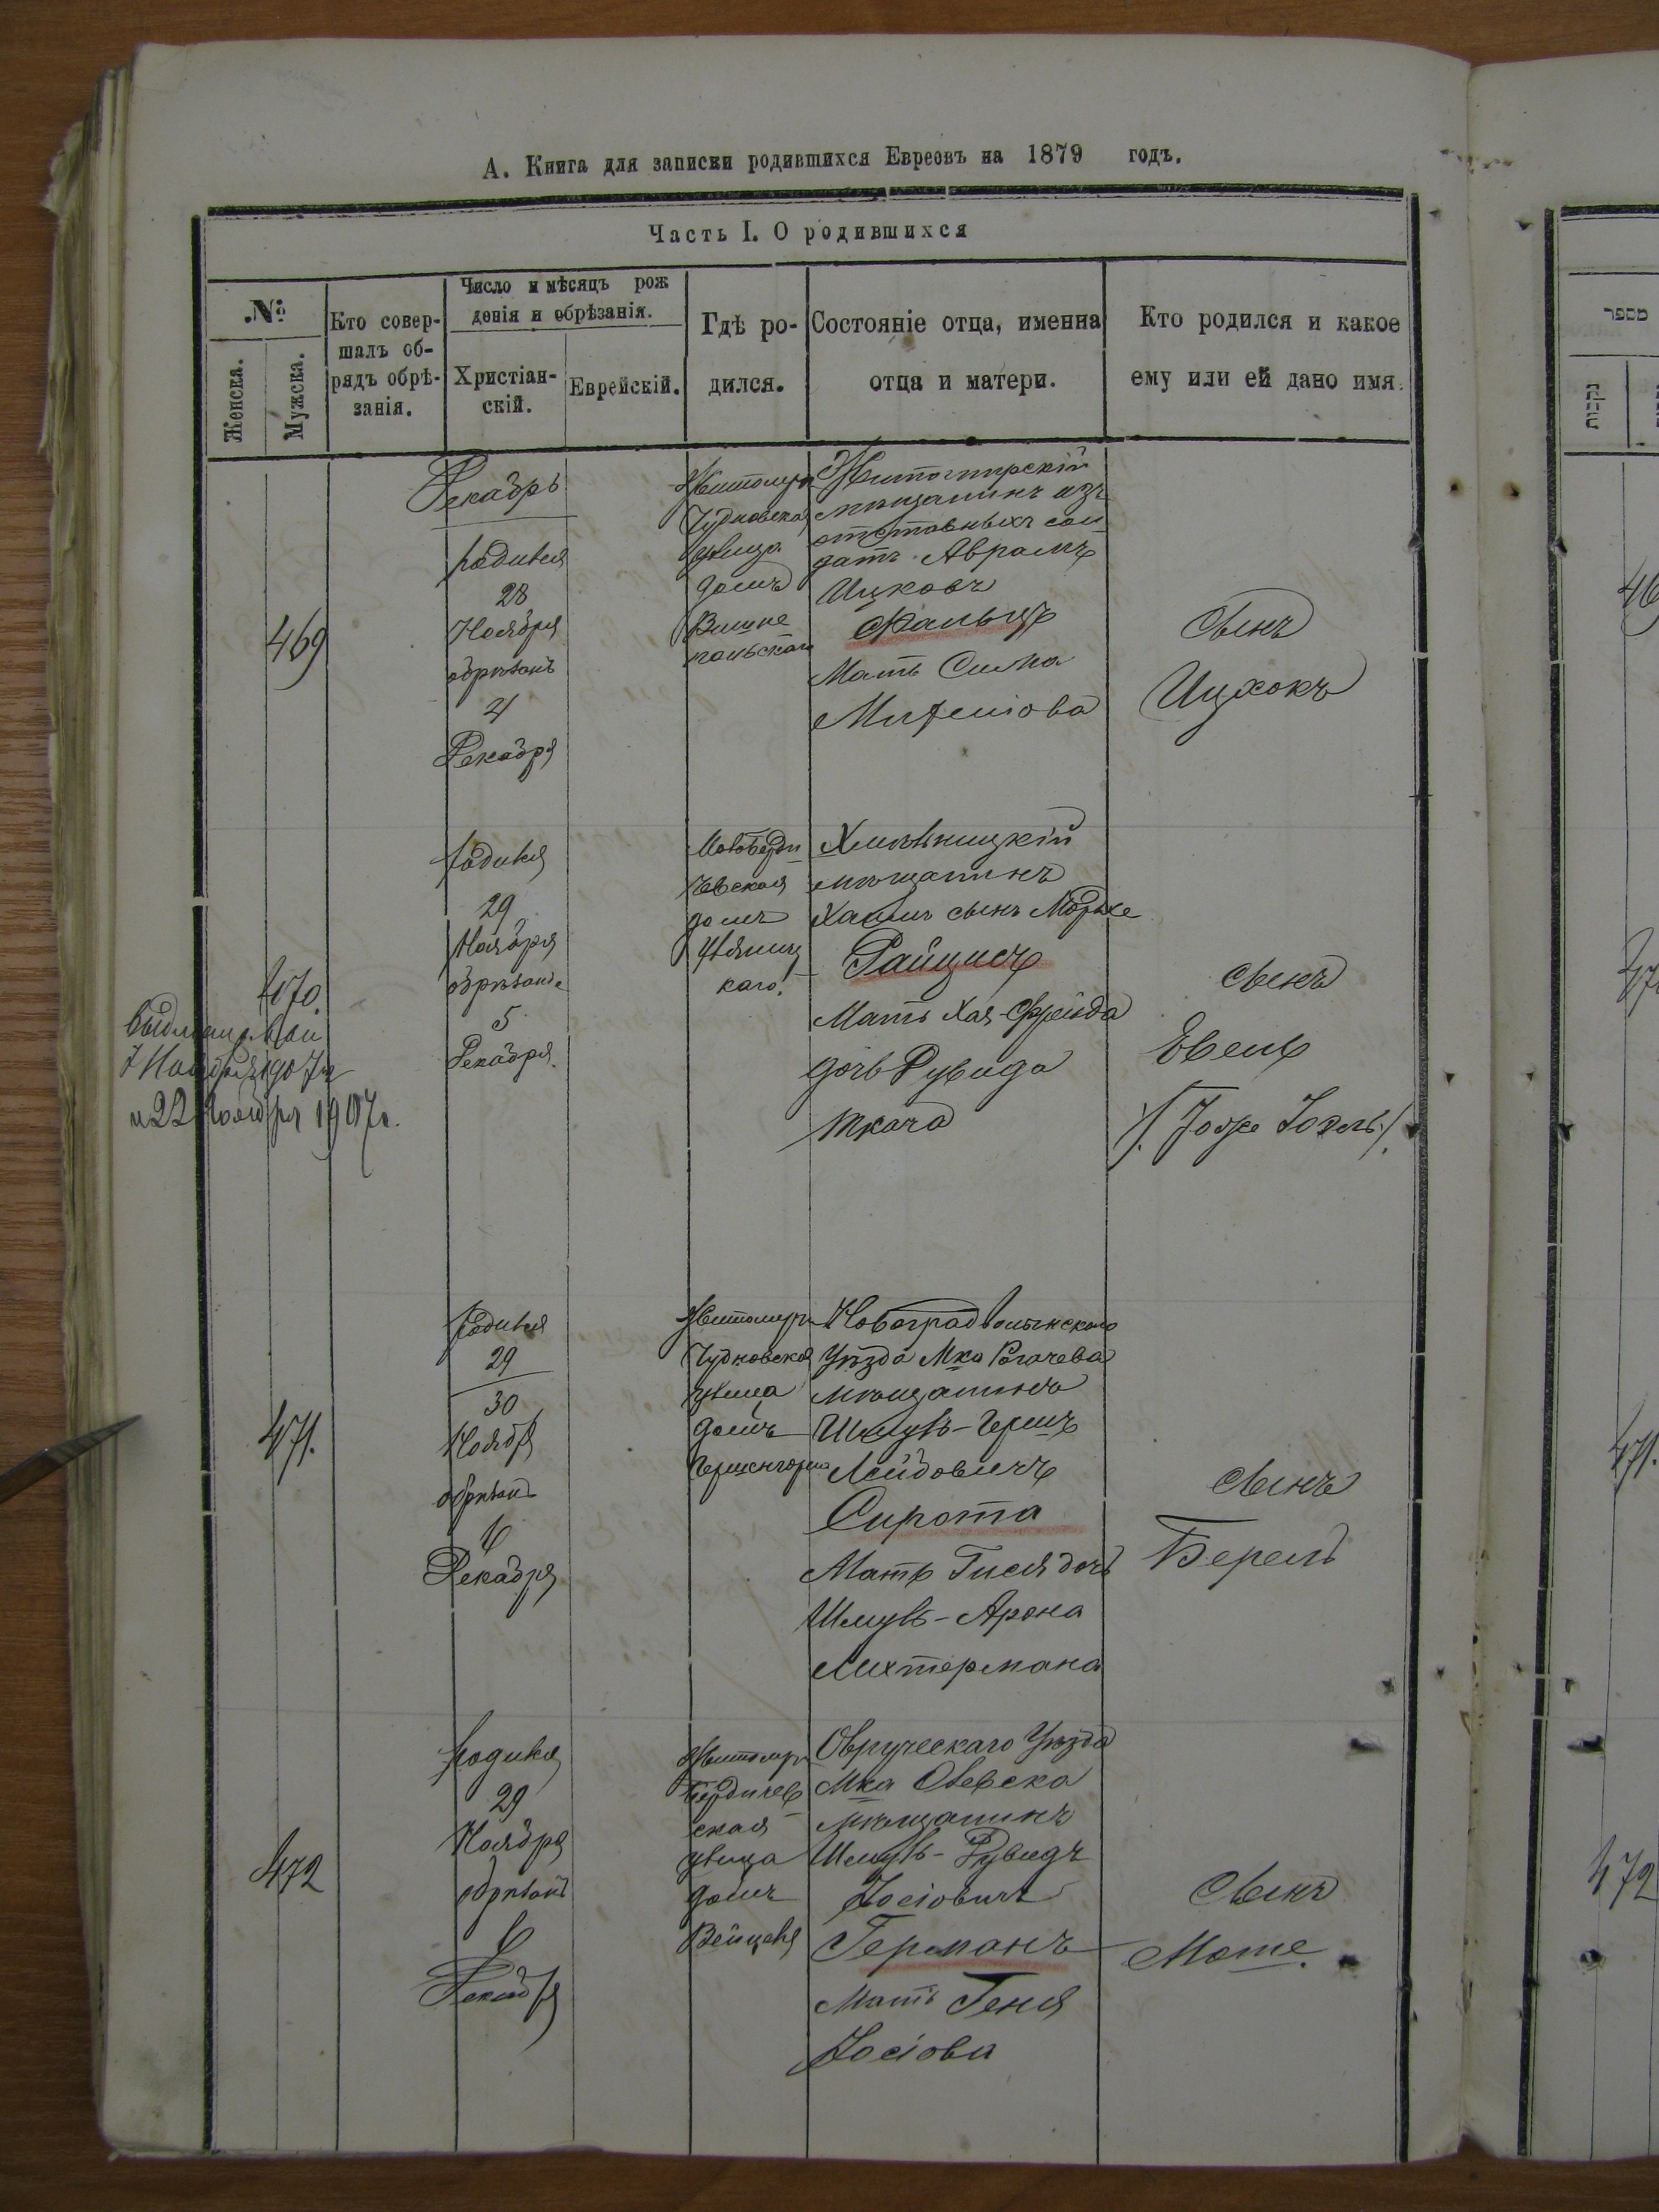 А. Книга для записки родившихся Евреовъ на 1879 годъ.
Часть I. О родившихся
№
Женска.
Мужска.
Кто совер-
шалъ об-
рядъ обрѣ-
занія.
Число и мѣсяцъ рож
денія и обрѣзанія.
Христіан-
скій.
Еврейскій.
Гдѣ ро-
дился.
Состояніе отца, именна
отца и матери.
Кто родился и какое
ему или ей дано имя.
מספר
נקבות
Декабрь
469
родился
28
Ноября
обрѣзанъ
Декабря
Житомиръ
Чудновская
улица
домъ
Житомирскій
мѣщанинъ изъ
отставныхъ сол
датъ Аврамъ
Ицковъ
Фальцъ
Мать Сима
сынъ
Ицхокъ
470.
7 Ноября 1907г
и 22 Ноября 1907г.
родился
29
Ноября
обрѣзанъ
5
Декабря.
чевская
домъ
каго.
Хмѣльницкій
мѣщанинъ
Хаимъ сынъ
Мать Хая-Фрейда
дочь Рувида
Ткача
сынъ
/. Тоже Іоэль ./
471.
родился
29
30
Ноября
обрѣзанъ
6
Декабря
Житомиръ
Чудновская
улица
домъ
Новоградволынскаго
Уѣзда Мка Рогачева
мѣщанинъ
Шмуль-Гершъ
Лейбовичъ
Сирота
Мать Гися дочь
Шмуль-Арона
Лихтермана
сынъ
Берель
472
родился
29
Ноября
обрѣзанъ
6
Декабря
Житомиръ
Бердичев
ская
улица
домъ
Овручскаго Уѣзда
Мка Олевска
мѣщанинъ
Шмуль-Рувидъ
Іосіовичъ
Германъ
Мать Геня
Іосіова
сынъ
471.
472